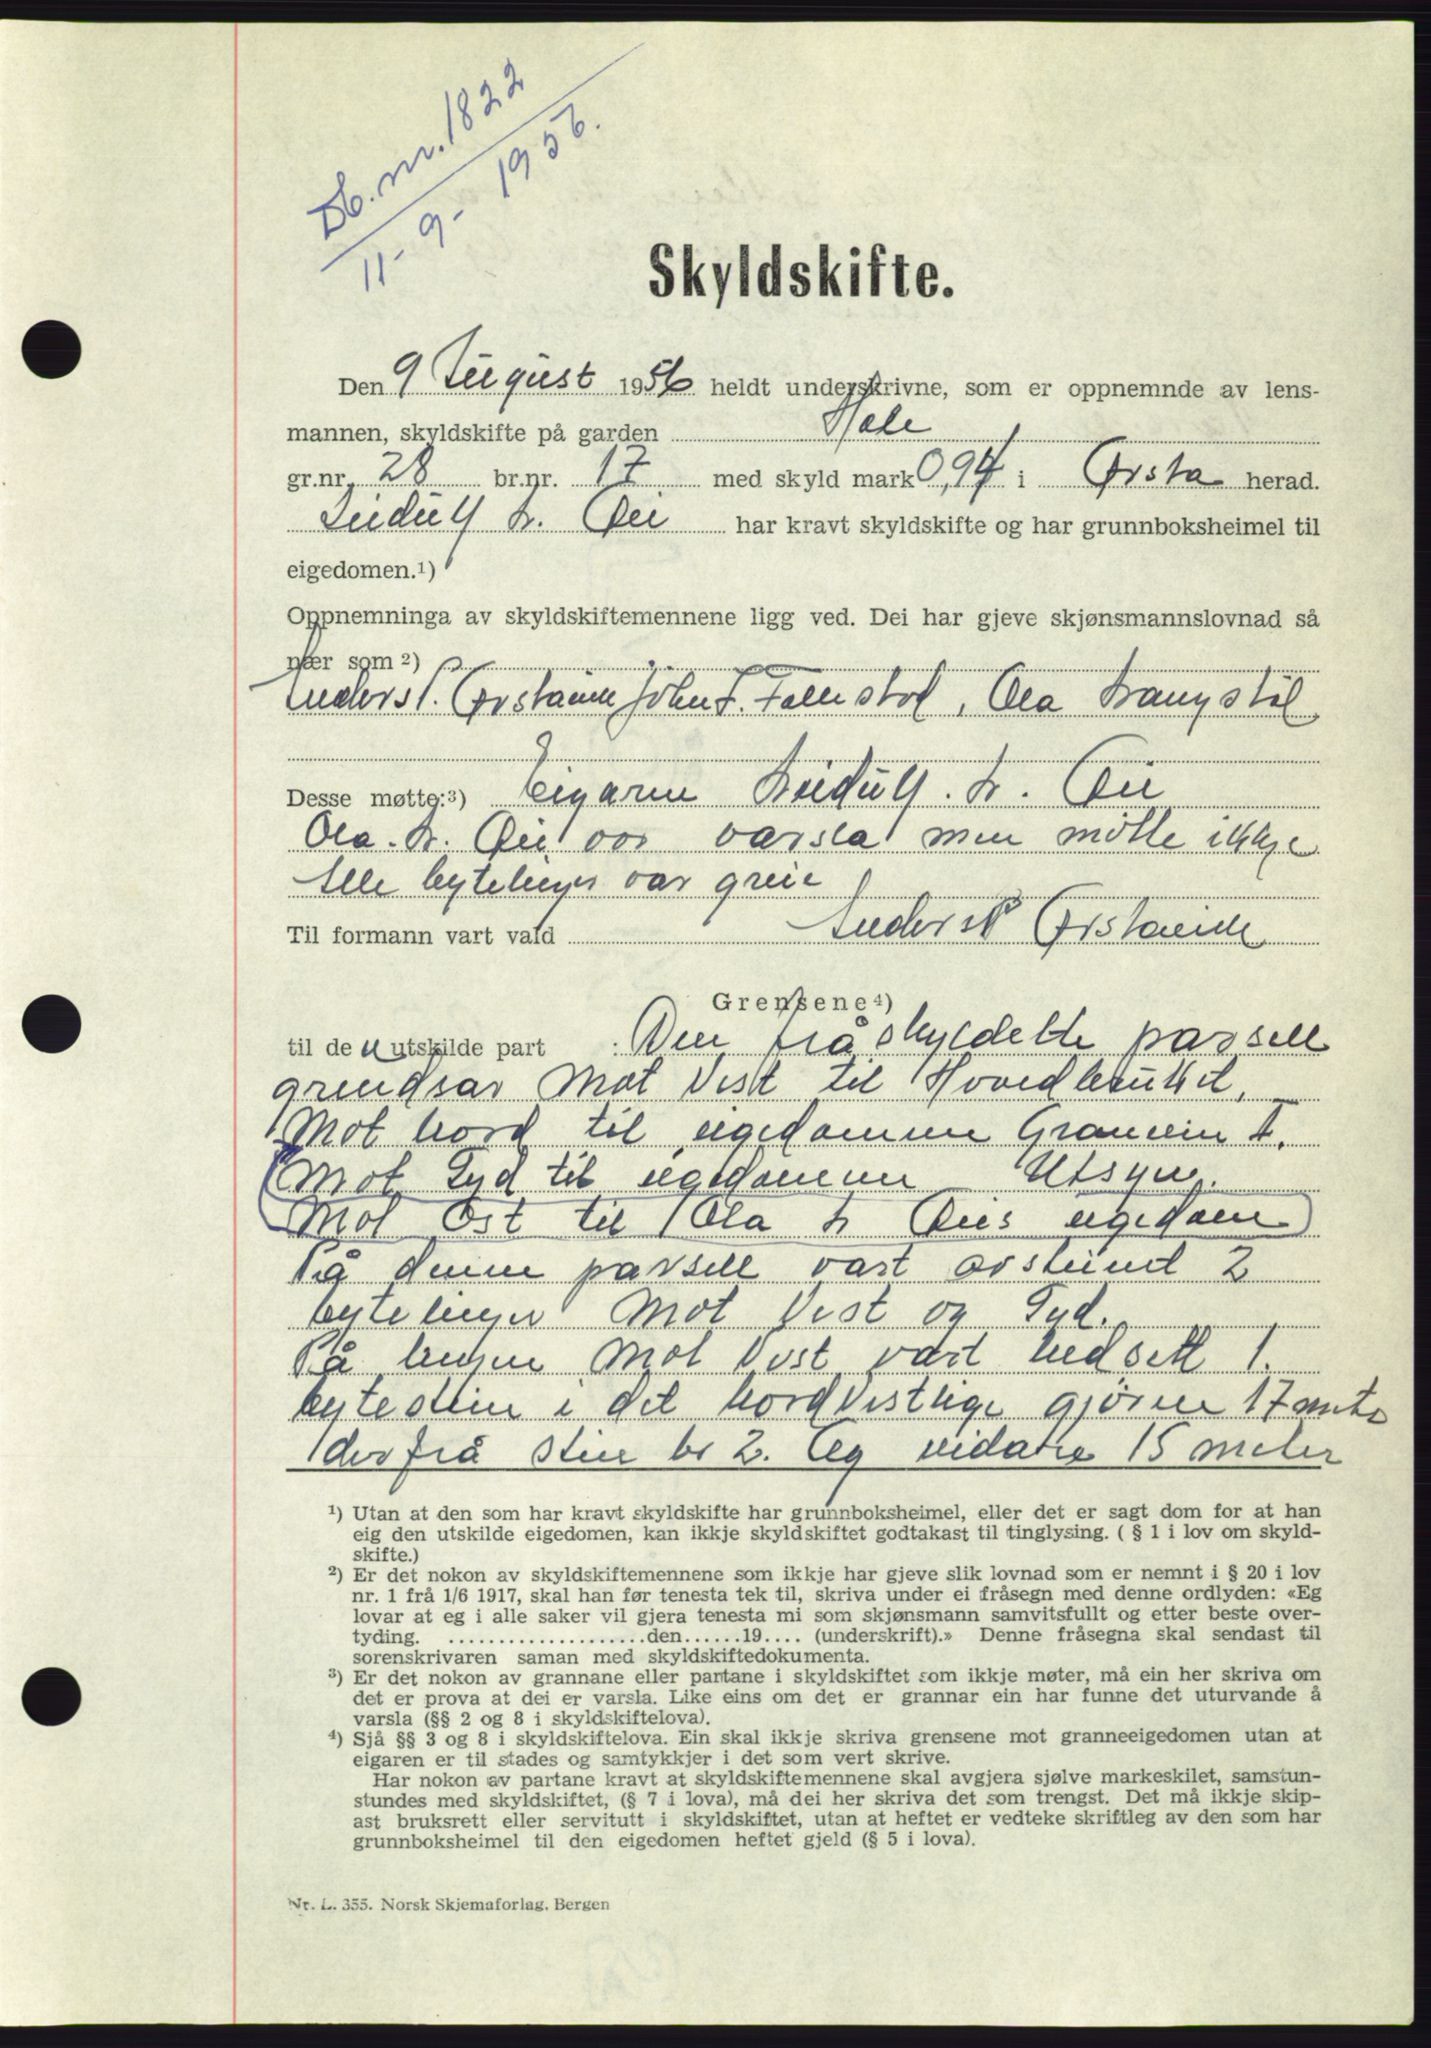 Db. nr. 1822
11-9-1956.
Skyldskifte.
Den 9 August 1956 heldt underskrivne, som er oppnemnde av lens-
mannen, skyldskifte på garden Hole
gr.nr. 28 br.nr. 17 med skyld mark 0,94 i Ørsta herad.
L. Øie har kravt skyldskifte og har grunnboksheimel til
eigedomen.1)
Oppnemninga av skyldskiftemennene ligg ved. Dei har gjeve skjønsmannslovnad så
nær som 2)
Anders P. Ørstavik John L. , Ola
Desse møtte:3) Eigaren L. Øie
Ola. L. Øie var varsla men møtte ikkje
Alle bytelinjer var greie
Til formann vart vald Anders P Ørstavik
Grensene4)
til den utskilde part : Den fråskyldelte parsell
grendsar Mot Vest til Hovedbruket,
Mot Nord til eigedommen Granheim I.
Mot Syd til eigedommen Utsyn.
Mot Øst til Ola L Øies eigedom
På denne parsell vart avstukne 2
bytelinjer Mot Vest og Syd.
På linjen Mot Vest vart nedsett 1.
bytestein i det NordVestlige hjørne 17 meter
derfrå stein nr 2. Og vidare 15 meter
1) Utan at den som har kravt skyldskifte har grunnboksheimel, eller det er sagt dom for at han
eig den utskilde eigedomen, kan ikkje skyldskiftet godtakast til tinglysing. ( § 1 i lov om skyld-
skifte.)
2) Er det nokon av skyldskiftemennene som ikkje har gjeve slik lovnad som er nemnt i § 20 i lov
nr. 1 frå 1/6 1917, skal han før tenesta tek til, skriva under ei fråsegn med denne ordlyden: «Eg
lovar at eg i alle saker vil gjera tenesta mi som skjønsmann samvitsfullt og etter beste over-
tyding. ....................den......19.... (underskrift).» Denne fråsegna skal sendast til
sorenskrivaren saman med skyldskiftedokumenta.
3) Er det nokon av grannane eller partane i skyldskiftet som ikkje møter, må ein her skriva om
det er prova at dei er varsla. Like eins om det er grannar ein har funne det uturvande å
varsla (§§ 2 og 8 i skyldskiftelova).
4) Sjå §§ 3 og 8 i skyldskiftelova. Ein skal ikkje skriva grensene mot granneeigedomen utan at
eigaren er til stades og samtykkjer i det som vert skrive.
Har nokon av partane kravt at skyldskiftemennene skal avgjera sjølve markeskilet, samstun-
stundes med skyldskiftet, (§ 7 i lova), må dei her skriva det som trengst. Det må ikkje skip-
ast bruksrett eller servitutt i skyldskiftet, utan at heftet er vedteke skriftleg av den som har
grunnboksheimel til den eigedomen heftet gjeld (§ 5 i lova).
Nr. L. 355. Norsk Skjemaforlag. Bergen